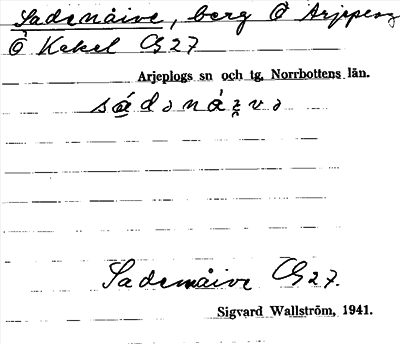 Sadenåive, berg Ö Arjeplog
Ö Kakel CG 27
Arjeplogs sn och tg, Norrbottens län.
Sadenåive CG 27.
Sigvard Wallström, 1941.